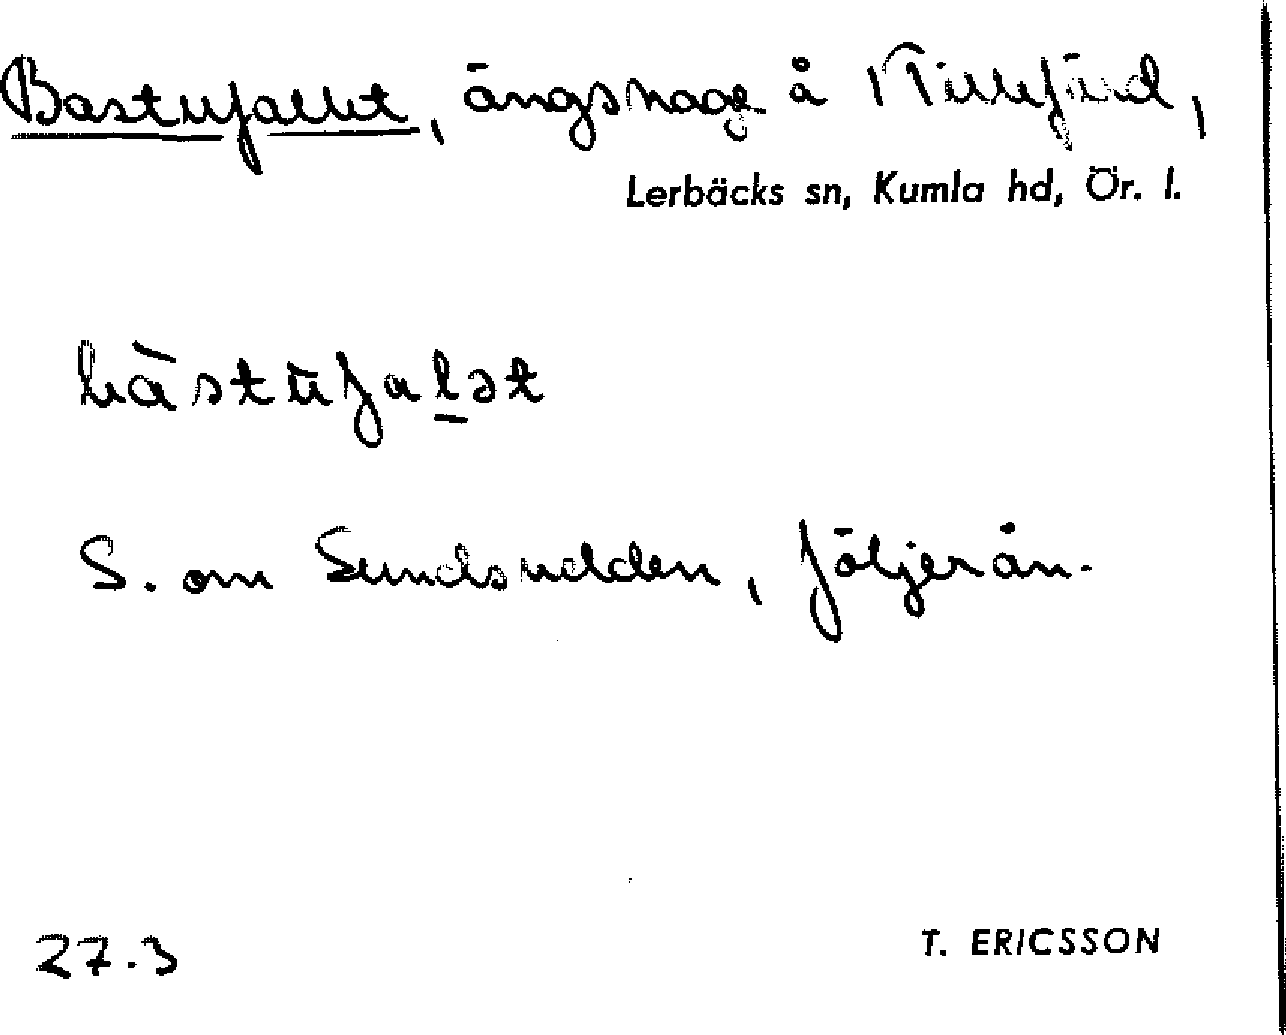 Bastufallet, ängshage å
Lerbäcks sn, Kumla hd, Ör. l.
bàstufalət
S. om Sundsudden, följer ån.
27.3
T. ERICSSON